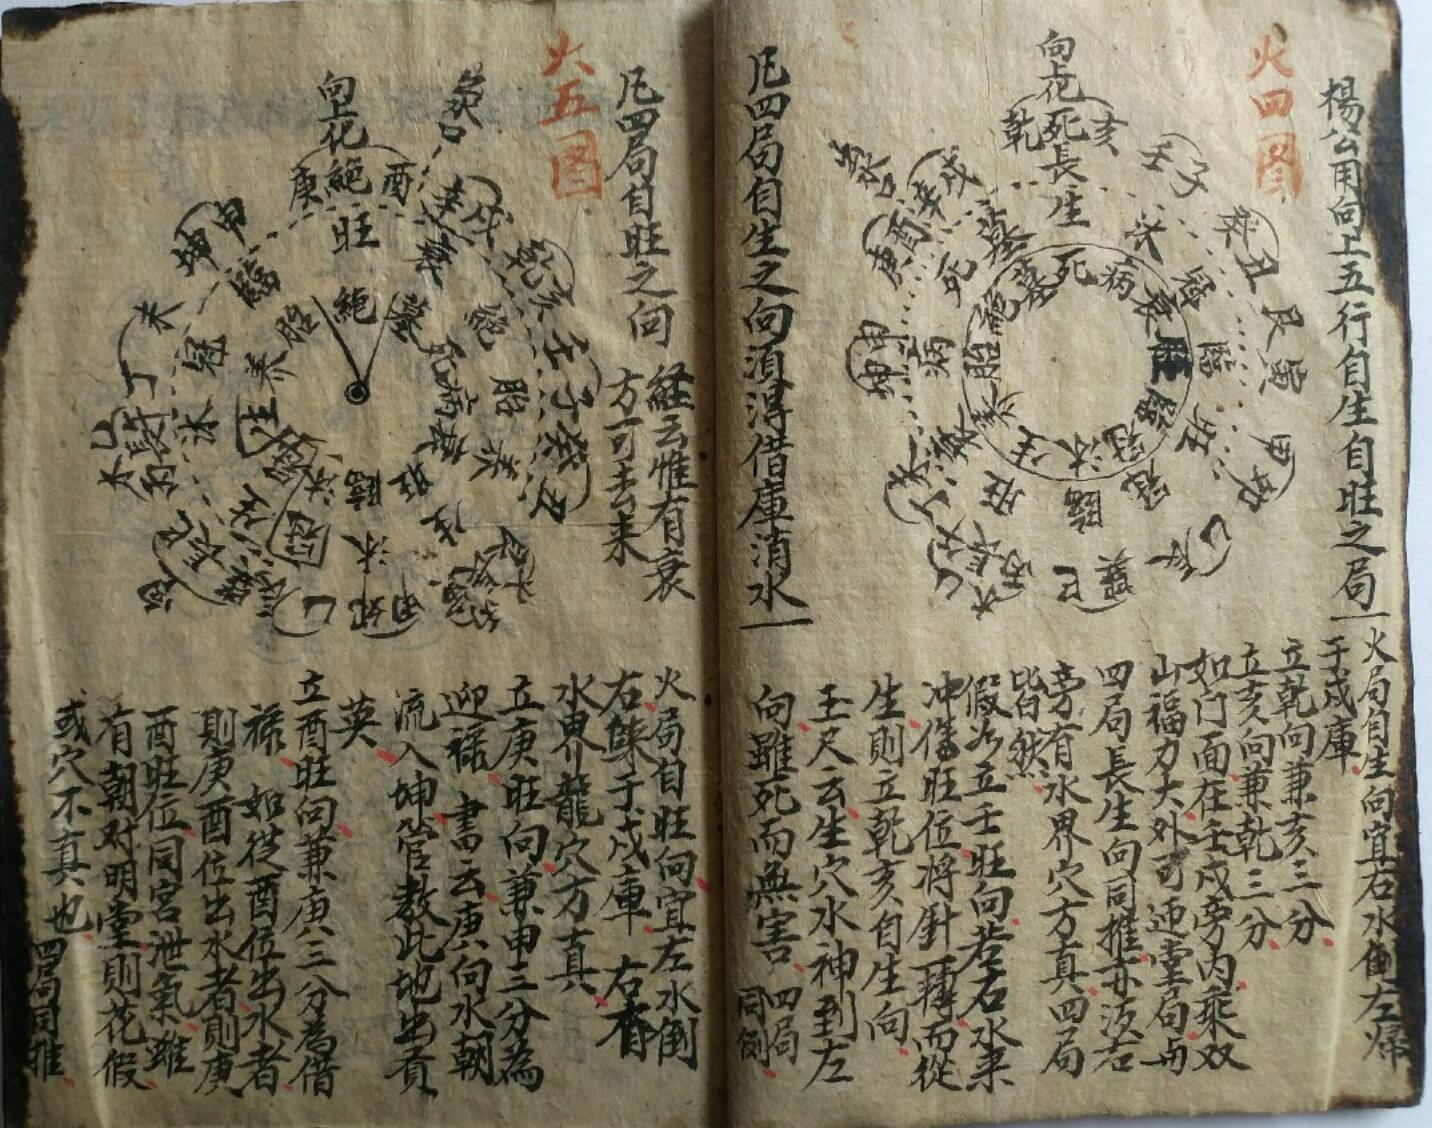 楊公用向上五行自生自旺之局
火四图
火局自生向宜右水倒左歸
于戍庫
立乾向兼亥三分
立亥向兼乾三分
如门面在壬戍旁内乘双
山福力大外可迎堂局与
四局長生向同推亦须右
旁有水界穴方真四局
皆然
假如立壬旺向若右水来
冲傷旺位将針轉而從
生則立乾亥自生向
壬尺云生穴水神到左
向雖死而無害
四局
同例
向上化死
乾
亥
長生
壬子
癸丑
艮寅
甲卯
乙
巳
丙
丁
未
坤申
庚酉
辛戍
沐
冠
臨
旺
衰
病
死
墓
胎
養
墓
死
病
衰
旺
臨
冠
沐
生
養
胎
絕
凡四局自生之向須得借庫消水
火五图
凡四局自旺之向
経云惟有衰
方可去来
火局自旺向宜左水倒
右歸于戍庫
右有
水界龍穴方真
立庚旺向兼申三分為
迎禄
書云庚向水朝
流入坤管教此地出貢
英
立酉旺向兼庚三分為借
禄
如從酉位出水者
則庚酉位出水者則庚
酉旺位同宫泄氣雖
有朝对明堂則花假
或穴不真也
四局同推
向上化
庚
絕
酉
旺
絕
辛戍
乾亥
壬子癸丑
坤申
未
丁
巳
乙
卯
甲
衰
墓
絕
死
病
胎
養
臨
冠
沐
胎
養
生